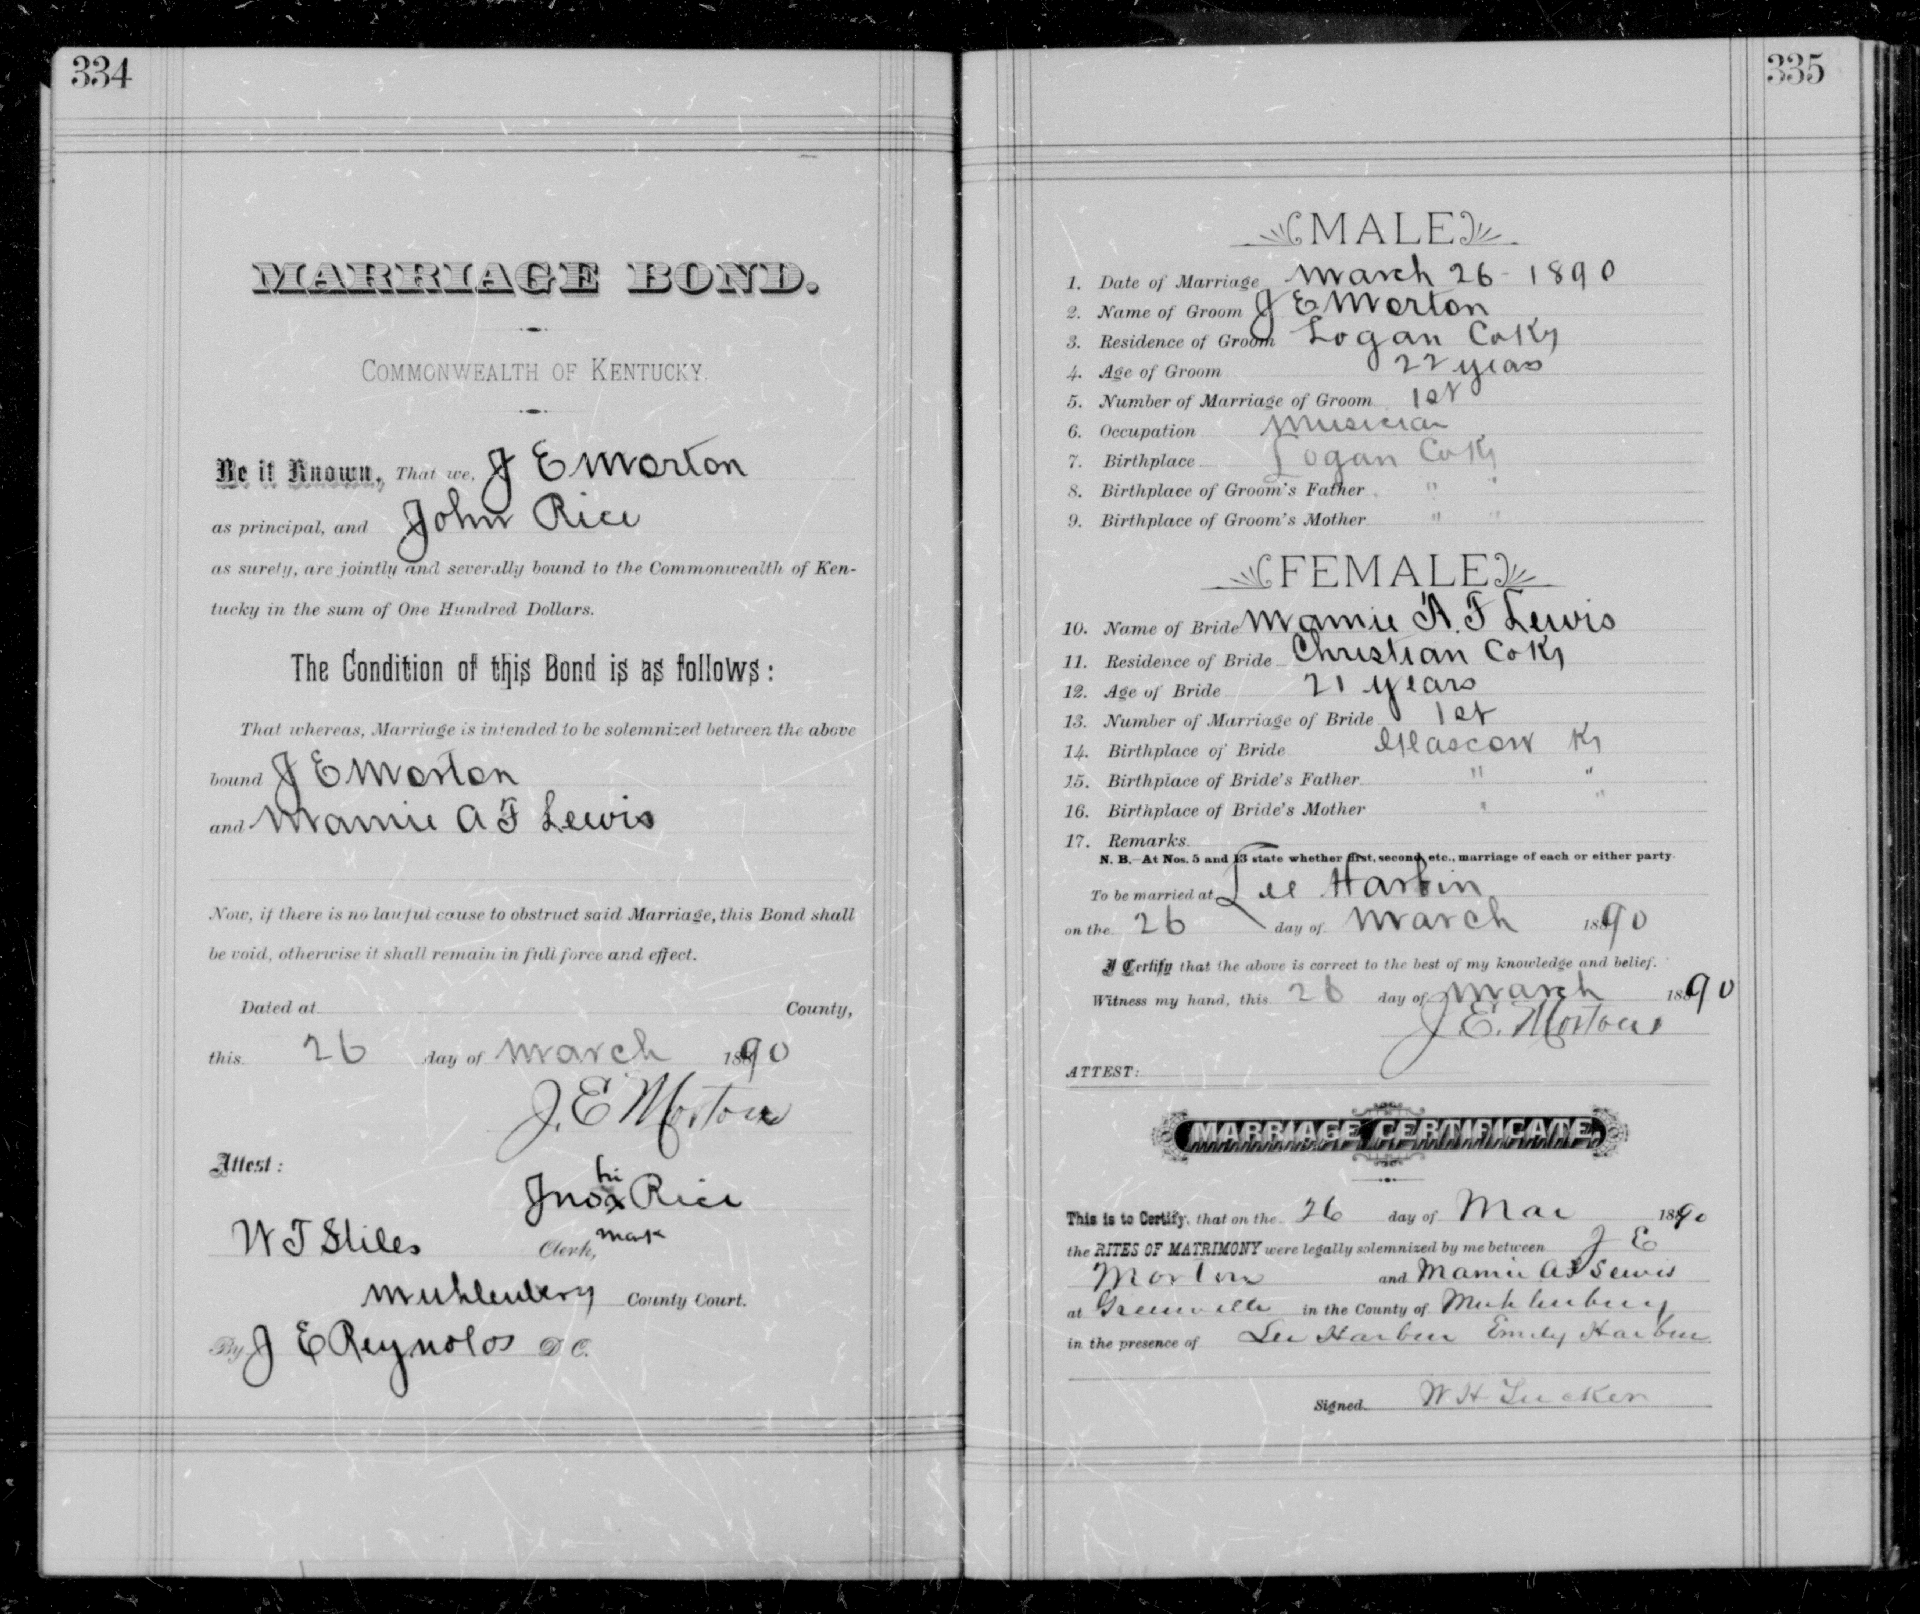 334
MARRIAGE BOND.
COMMONWEALTH OF KENTUCKY.
Be it Known, That we, J E Morton
as principal, and John Rice
as surety, are jointly and severally bound to the Commonwealth of Ken-
tucky in the sum of One Hundred Dollars.
The Condition of this Bond is as follows:
That whereas, Marriage is intended to be solemnized between the above
bound J E Morton
and Mamie A F Lewis
Now, if there is no lawful cause to obstruct said Marriage, this Bond shall
be void, otherwise it shall remain in full force and effect.
Dated at County,
this 26 day of March 1890
J. E Morton
Attest:
hi
Jno x Rice
mark
W T Stiles Clerk,
Muhlenberg County Court.
By J E Reynolds D C.
335
MALE
1. Date of Marriage March 26 - 1890
2. Name of Groom J E Morton
3. Residence of Groom Logan Co Ky
4. Age of Groom 22 years
5. Number of Marriage of Groom 1st
6. Occupation Musician
7. Birthplace Logan Co Ky
8. Birthplace of Groom's Father " "
9. Birthplace of Groom's Mother " "
FEMALE
10. Name of Bride Mamie A. F Lewis
11. Residence of Bride Christian Co Ky
12. Age of Bride 21 years
13. Number of Marriage of Bride 1st
14. Birthplace of Bride Glascow Ky
15. Birthplace of Bride's Father " "
16. Birthplace of Bride's Mother " "
17. Remarks.
N. B.—At Nos. 5 and 13 state whether first, second, etc., marriage of each or either party.
To be married at Lee Harbin
on the 26 day of March 1890
I Certify that the above is correct to the best of my knowledge and belief.
Witness my hand, this 26 day of March 1890
J. E. Morton
ATTEST:
MARRIAGE CERTIFICATE.
This is to Certify, that on the 26 day of Mar 1890
the RITES OF MATRIMONY were legally solemnized by me between J E
Morton and Mamie A F Lewis
at Greenville in the County of Muhlenburg
in the presence of Lee Harbin Emily Harbin
Signed W H Tucker